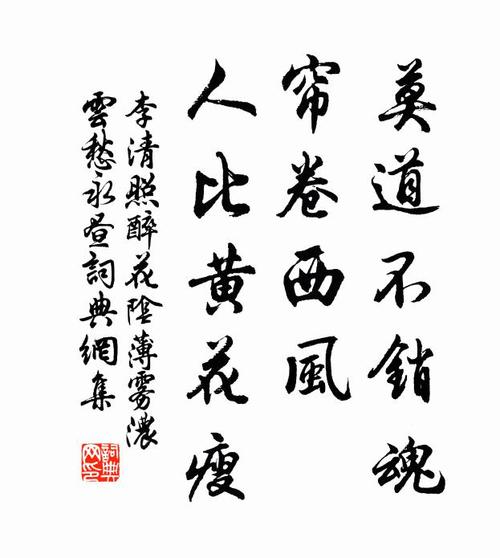 莫道不銷魂
帘卷西風
人比黄花瘦
李清照醉花陰薄雾濃
雲愁永昼詞典網集
詞典網印